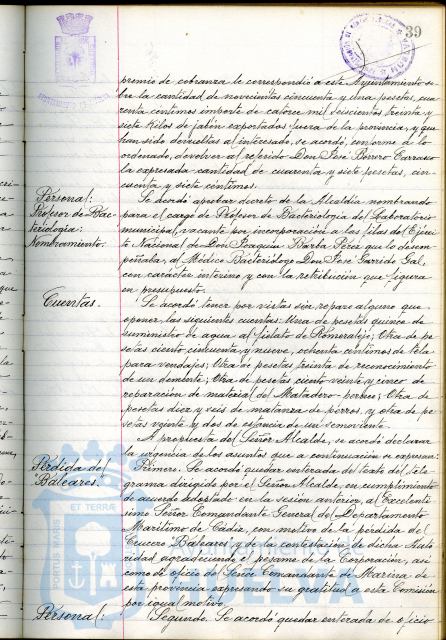 39
premio de cobranza le correspondió a este Ayuntamiento so-
bre la cantidad de novecientas cincuenta y una pesetas, cua-
renta céntimos importe de catorce mil seiscientos treinta y
siete kilos de jabón exportados fuera de la provincia, y que
han sido devueltas al interesado, se acordó, conforme a lo
ordenado, devolver al referido Don José Borrero Carrasco
la expresada cantidad de cuarenta y siete pesetas, cin-
cuenta y siete céntimos.
Personal:
Profesor de Bac-
teriología:
Nombramiento.
Se acordó aprobar decreto de la Alcaldía nombrando
para el cargo de Profesor de Bacteriología del Laboratorio
municipal, vacante por incorporación a las filas del Ejérci-
to Nacional de Don Joaquín Barba Pérez que lo desem-
peñaba, al Médico Bacteriólogo Don José Garrido Gal,
con carácter interino y con la retribución que figura
en presupuesto.
Cuentas.
Se acordó tener por vistas sin reparo alguno que
oponer, las siguientes cuentas: Una de pesetas quince de
suministro de agua al fielato de Romeralejo; Otra de pe-
setas ciento cincuenta y nueve, ochenta céntimos de tela
para vendajes; Otra de pesetas treinta de reconocimiento
de un demente; Otra de pesetas ciento veinte y cinco de
reparación de material del Matadero porcuno; Otra de
pesetas diez y seis de matanza de perros, y otra de pe-
setas veinte y dos de estancia de un semoviente.
A propuesta del Señor Alcalde, se acordó declarar
la urgencia de los asuntos que a continuación se expresan:
Pérdida del
Baleares.
Primero. Se acordó quedar enterada del texto del tele-
grama dirigido por el Señor Alcalde, en cumplimiento
de acuerdo adoptado en la sesión anterior, al Excelentí-
simo Señor Comandante General del Departamento
Marítimo de Cádiz, con motivo de la pérdida del
Crucero Baleares y de la contestación de dicha Auto-
ridad agradeciendo el pésame de la Corporación, así
como de oficio del Señor Comandante de Marina de
esta provincia expresando su gratitud a esta Comisión
por igual motivo.
Personal:
Segundo. Se acordó quedar enterada de oficio
PORTUS MARIS ET TERRAE
Ayuntamiento de
HUELVA